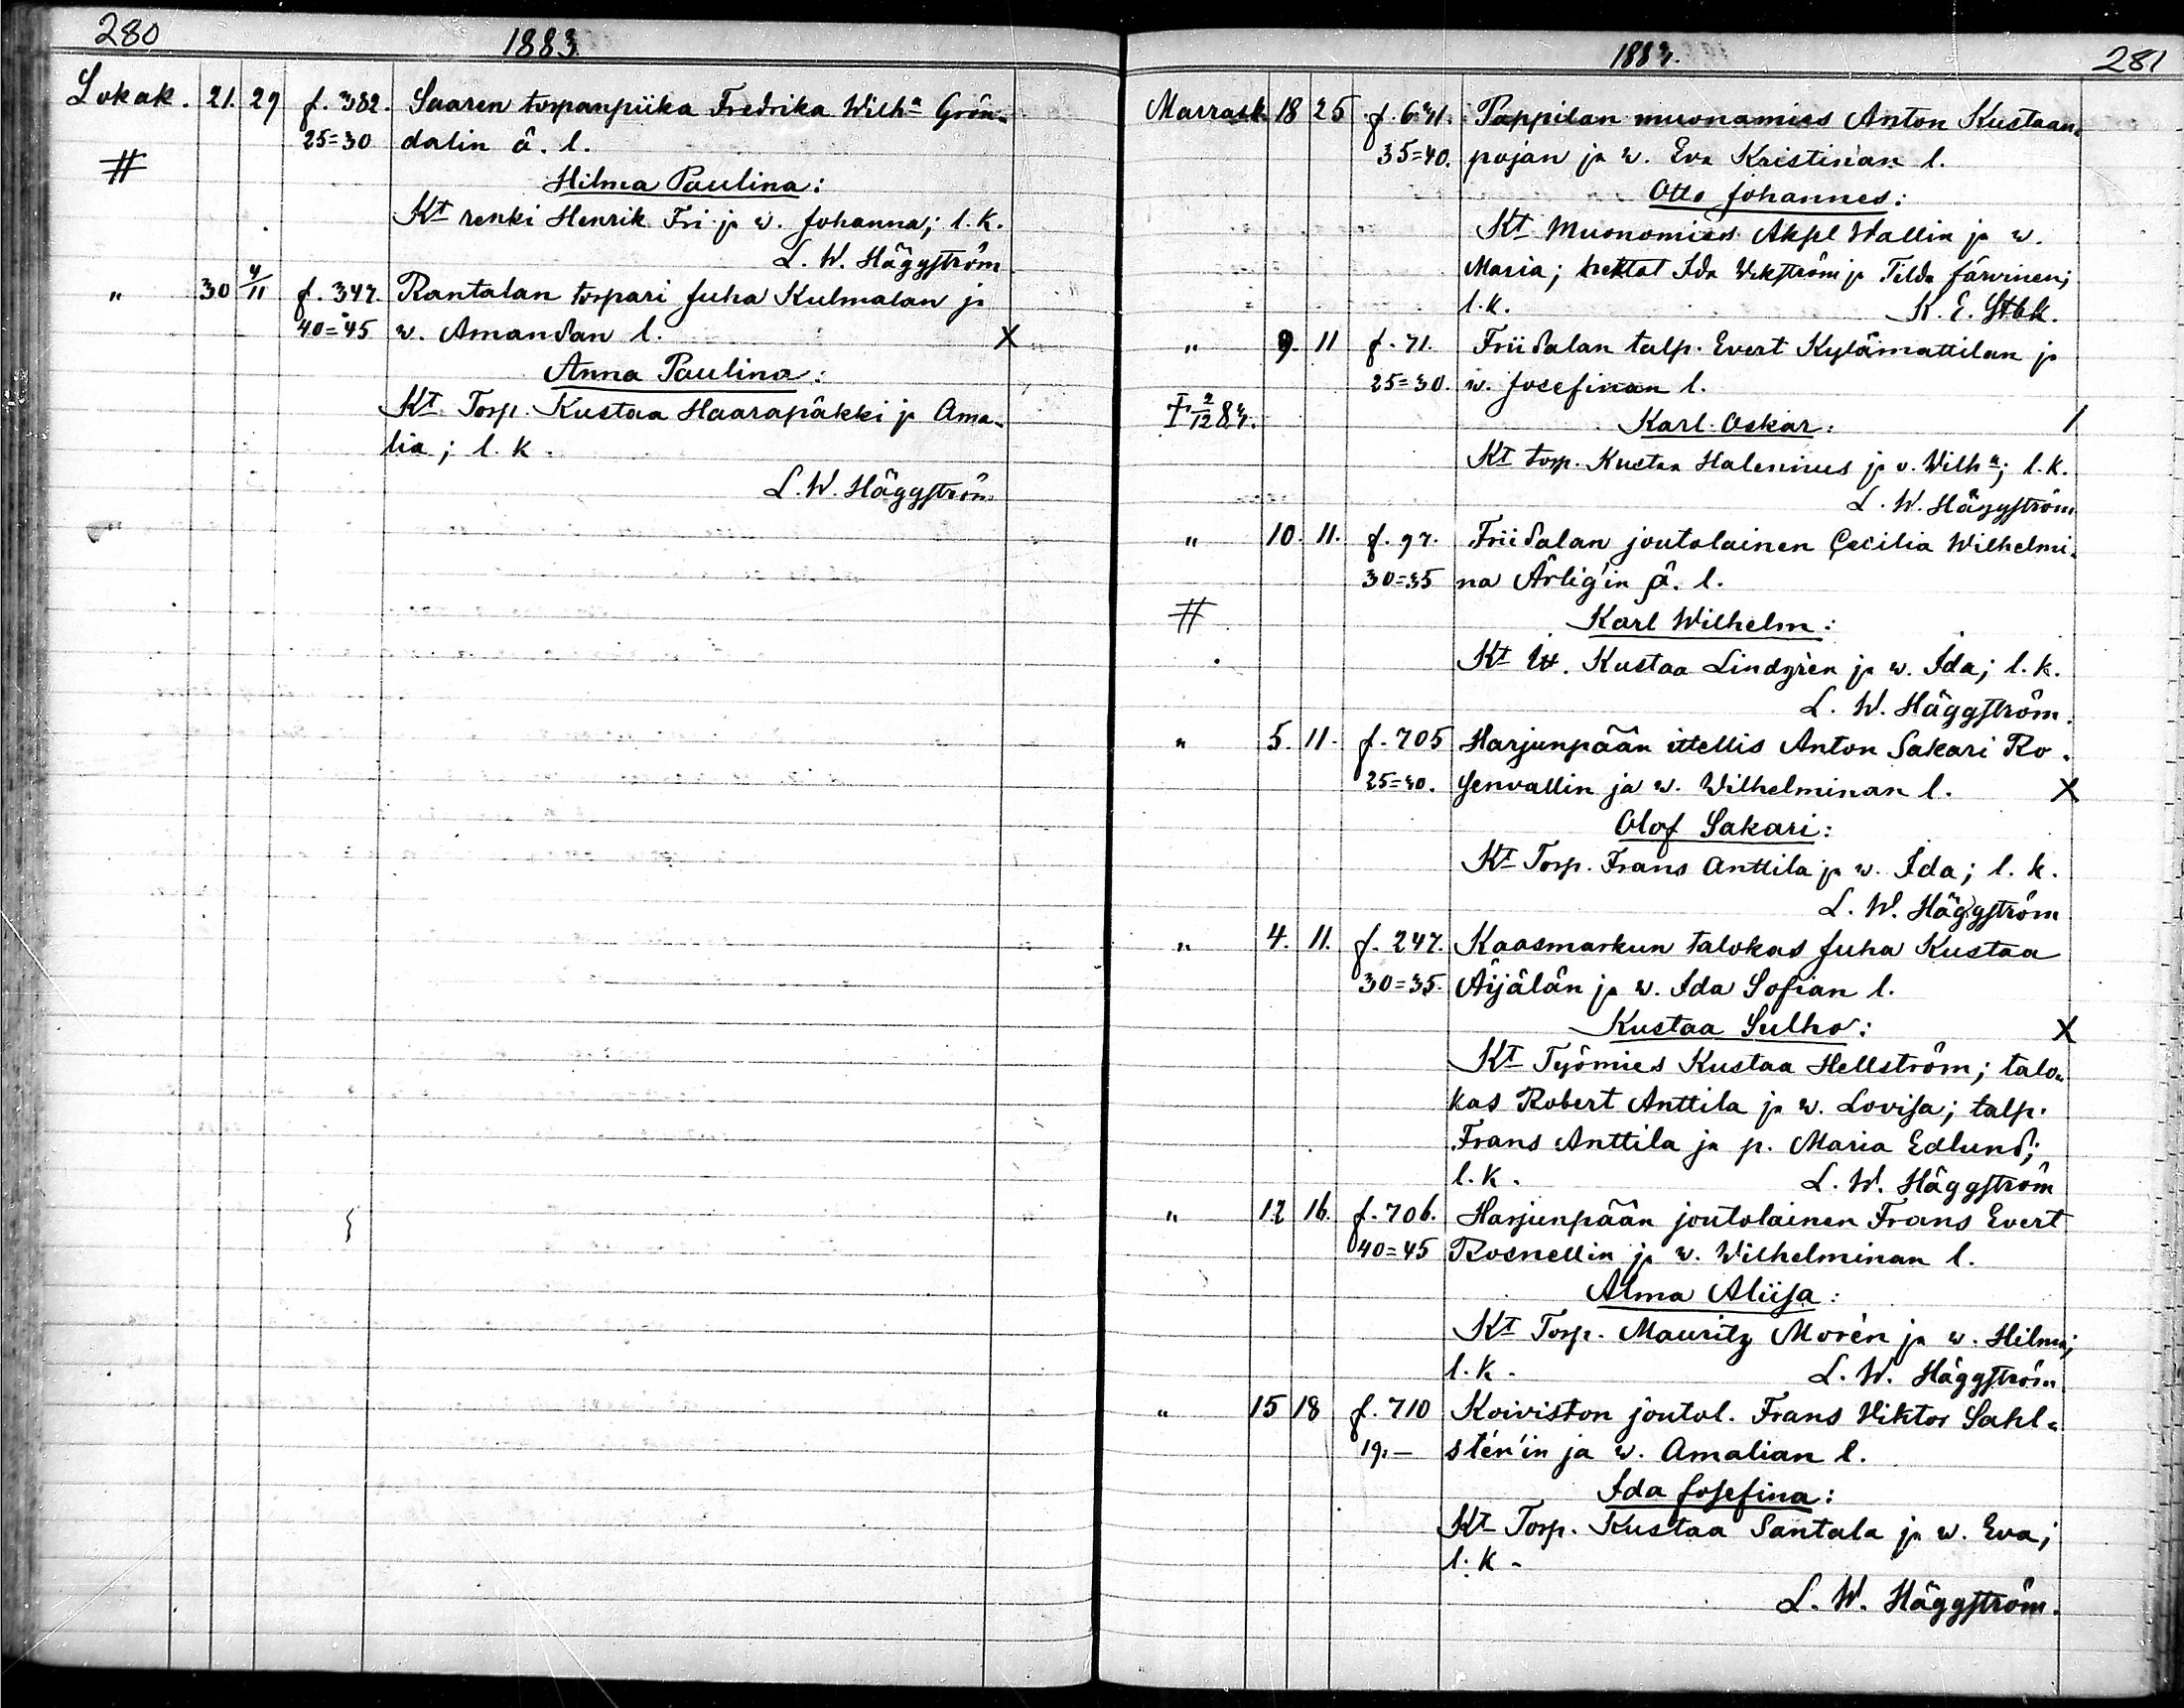 280
1883.
Lokak. 21. 29 f. 382. Saaren torpanpiika Fredrika Wilhª Grön-
25=30 dalin ä. l.
# Hilma Paulina:
Kt renki Henrik Fri ja w. Johanna; l. k.
L. W. Häggström
" 30 4/11 f. 347. Rantalan torpari Juha Kulmalan ja
40=45 w. Amandan l. X
Anna Paulina:
Kt Torp. Kustaa Haarapäkki ja Ama-
lia; l. k.
L. W. Häggström
1883.
281
Marrask. 18 25 f. 631. Pappilan muonamies Anton Kustaan-
35=40. pojan ja w. Eva Kristinan l.
Otto Johannes:
Kt Muonamies Akpl Wallin ja w.
Maria; Ida Wekström ja Tilda Järwinen;
l. k. K. E. Stbk.
" 9. 11 f. 71. Friidalan talp. Evert Kylämattilan ja
25=30. w. Josefinan l.
2/12 Karl Oskar: /
Kt torp. Kustaa Halenius ja v. Wilhª; l. k.
L. W. Häggström
" 10. 11. f. 97. Friidalan joutolainen Cecilia Wilhelmi-
30=35 na Ärlig'in ä. l.
# Karl Wilhelm:
Kt Itt. Kustaa Lindgrén ja w. Ida; l. k.
L. W. Häggström.
" 5. 11. f. 705 Harjunpään ittellis Anton Sakari Ro-
25=30. senvallin ja w. Wilhelminan l. X
Olof Sakari:
Kt Torp. Frans Anttila ja w. Ida; l. k.
L. W. Häggström
" 4. 11. f. 247. Kaasmarkun talokas Juha Kustaa
30=35. Äijälän ja w. Ida Sofian l.
Kustaa Sulho: X
Kt Työmies Kustaa Hellström; talo-
kas Robert Anttila ja w. Lovisa; talp.
Frans Anttila ja p. Maria Edlund;
l. k. L. W. Häggström
" 12 16. f. 706. Harjunpään joutolainen Frans Evert
40=45 Rosnellin ja w. Wilhelminan l.
Alma Aliisa:
Kt Torp. Mauritz Morén ja w. Hilma;
l. k. L. W. Häggström
" 15 18 f. 710 Koiviston joutol. Frans Viktor Sahl-
19:— stén'in ja w. Amalian l.
Ida Josefina:
Kt Torp. Kustaa Santala ja w. Eva;
l. k.
L. W. Häggström.